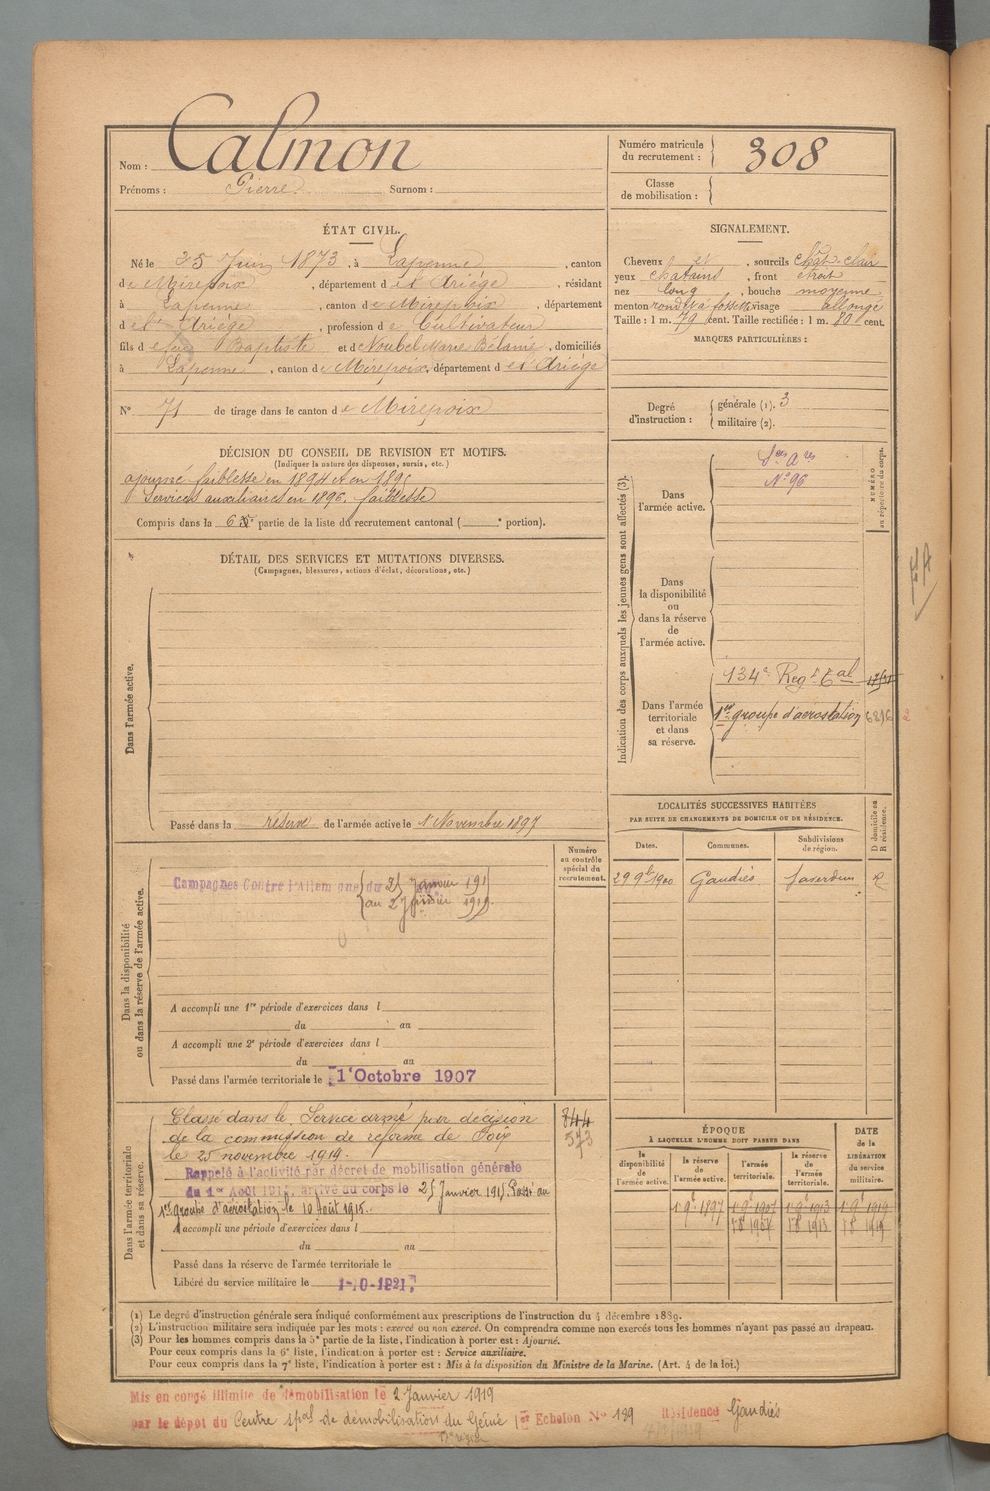 Nom : Calmon
Prénoms : Pierre Surnom :
Numéro matricule du recrutement : 308
Classe de mobilisation :
ÉTAT CIVIL.
Né le 25 Juin 1873, à Lapenne, canton
de Mirepoix, département de l'Ariège, résidant
à Lapenne, canton de Mirepoix, département
de l'Ariège, profession de Cultivateur
fils de feu Baptiste et de Noubel Marie Mélanie, domiciliés
à Lapenne, canton de Mirepoix, département de l'Ariège
N° 71 de tirage dans le canton de Mirepoix
SIGNALEMENT.
Cheveux et, sourcils chât-clair
yeux chatains, front étroit
nez long, bouche moyenne
menton rond et à fossette visage allongé
Taille : 1 m. 79 cent. Taille rectifiée : 1 m. 80 cent.
MARQUES PARTICULIÈRES :
Degré d'instruction : générale (1). 3
militaire (2).
DÉCISION DU CONSEIL DE REVISION ET MOTIFS.
(Indiquer la nature des dispenses, sursis, etc.)
ajourné faiblesse en 1894 et en 1895
Services auxiliaires en 1896. faiblesse
Compris dans la 6e partie de la liste du recrutement cantonal ( e portion).
DÉTAIL DES SERVICES ET MUTATIONS DIVERSES.
(Campagnes, blessures, actions d'éclat, décorations, etc.)
Dans l'armée active.
Passé dans la réserve de l'armée active le 1 Novembre 1897
Indication des corps auxquels les jeunes gens sont affectés (3).
NUMÉRO au répertoire du corps.
Dans l'armée active.
Ses Ares
N° 96
Dans la disponibilité ou dans la réserve de l'armée active.
Dans l'armée territoriale et dans sa réserve.
134e Regt Tal
1er groupe d'aérostation 6896
LOCALITÉS SUCCESSIVES HABITÉES
PAR SUITE DE CHANGEMENTS DE DOMICILE OU DE RÉSIDENCE.
D domicile ou R résidence.
Dates. Communes. Subdivisions de région.
29 9bre 1900 Gaudiès Saverdun R
Dans la disponibilité ou dans la réserve de l'armée active.
Numéro au contrôle spécial du recrutement.
Campagnes Contre l'Allemagne du 25 Janvier 1915
au 2 Janvier 1919.
A accompli une 1re période d'exercices dans l
du au
A accompli une 2e période d'exercices dans l
du au
Passé dans l'armée territoriale le 1 Octobre 1907
Dans l'armée territoriale et dans sa réserve.
Classé dans le Service armé par décision
de la commission de réforme de Foix
le 25 novembre 1914.
Rappelé à l'activité par décret de mobilisation générale
du 1er Août 1914. arrivé au corps le 25 Janvier 1915. Passé au
1er groupe d'aérostation le 10 Août 1915.
A accompli une période d'exercices dans l
du au
Passé dans la réserve de l'armée territoriale le
Libéré du service militaire le 1-10-1921
844
573
ÉPOQUE
À LAQUELLE L'HOMME DOIT PASSER DANS
DATE de la LIBÉRATION du service militaire.
la disponibilité de l'armée active. la réserve de l'armée active. l'armée territoriale. la réserve de l'armée territoriale.
1 9e 1897 1 9e 1907 1 9e 1913 1 9e 1919
1 8e 1907 1 8e 1913 1 8e 1919
(1) Le degré d'instruction générale sera indiqué conformément aux prescriptions de l'instruction du 4 décembre 1889.
(2) L'instruction militaire sera indiquée par les mots : exercé ou non exercé. On comprendra comme non exercés tous les hommes n'ayant pas passé au drapeau.
(3) Pour les hommes compris dans la 5e partie de la liste, l'indication à porter est : Ajourné.
Pour ceux compris dans la 6e liste, l'indication à porter est : Service auxiliaire.
Pour ceux compris dans la 7e liste, l'indication à porter est : Mis à la disposition du Ministre de la Marine. (Art. 4 de la loi.)
Mis en congé illimité de démobilisation le 2 Janvier 1919
par le dépôt du Centre spal de démobilisation du Génie 1er Echelon N° 199 Résidence Gaudiès